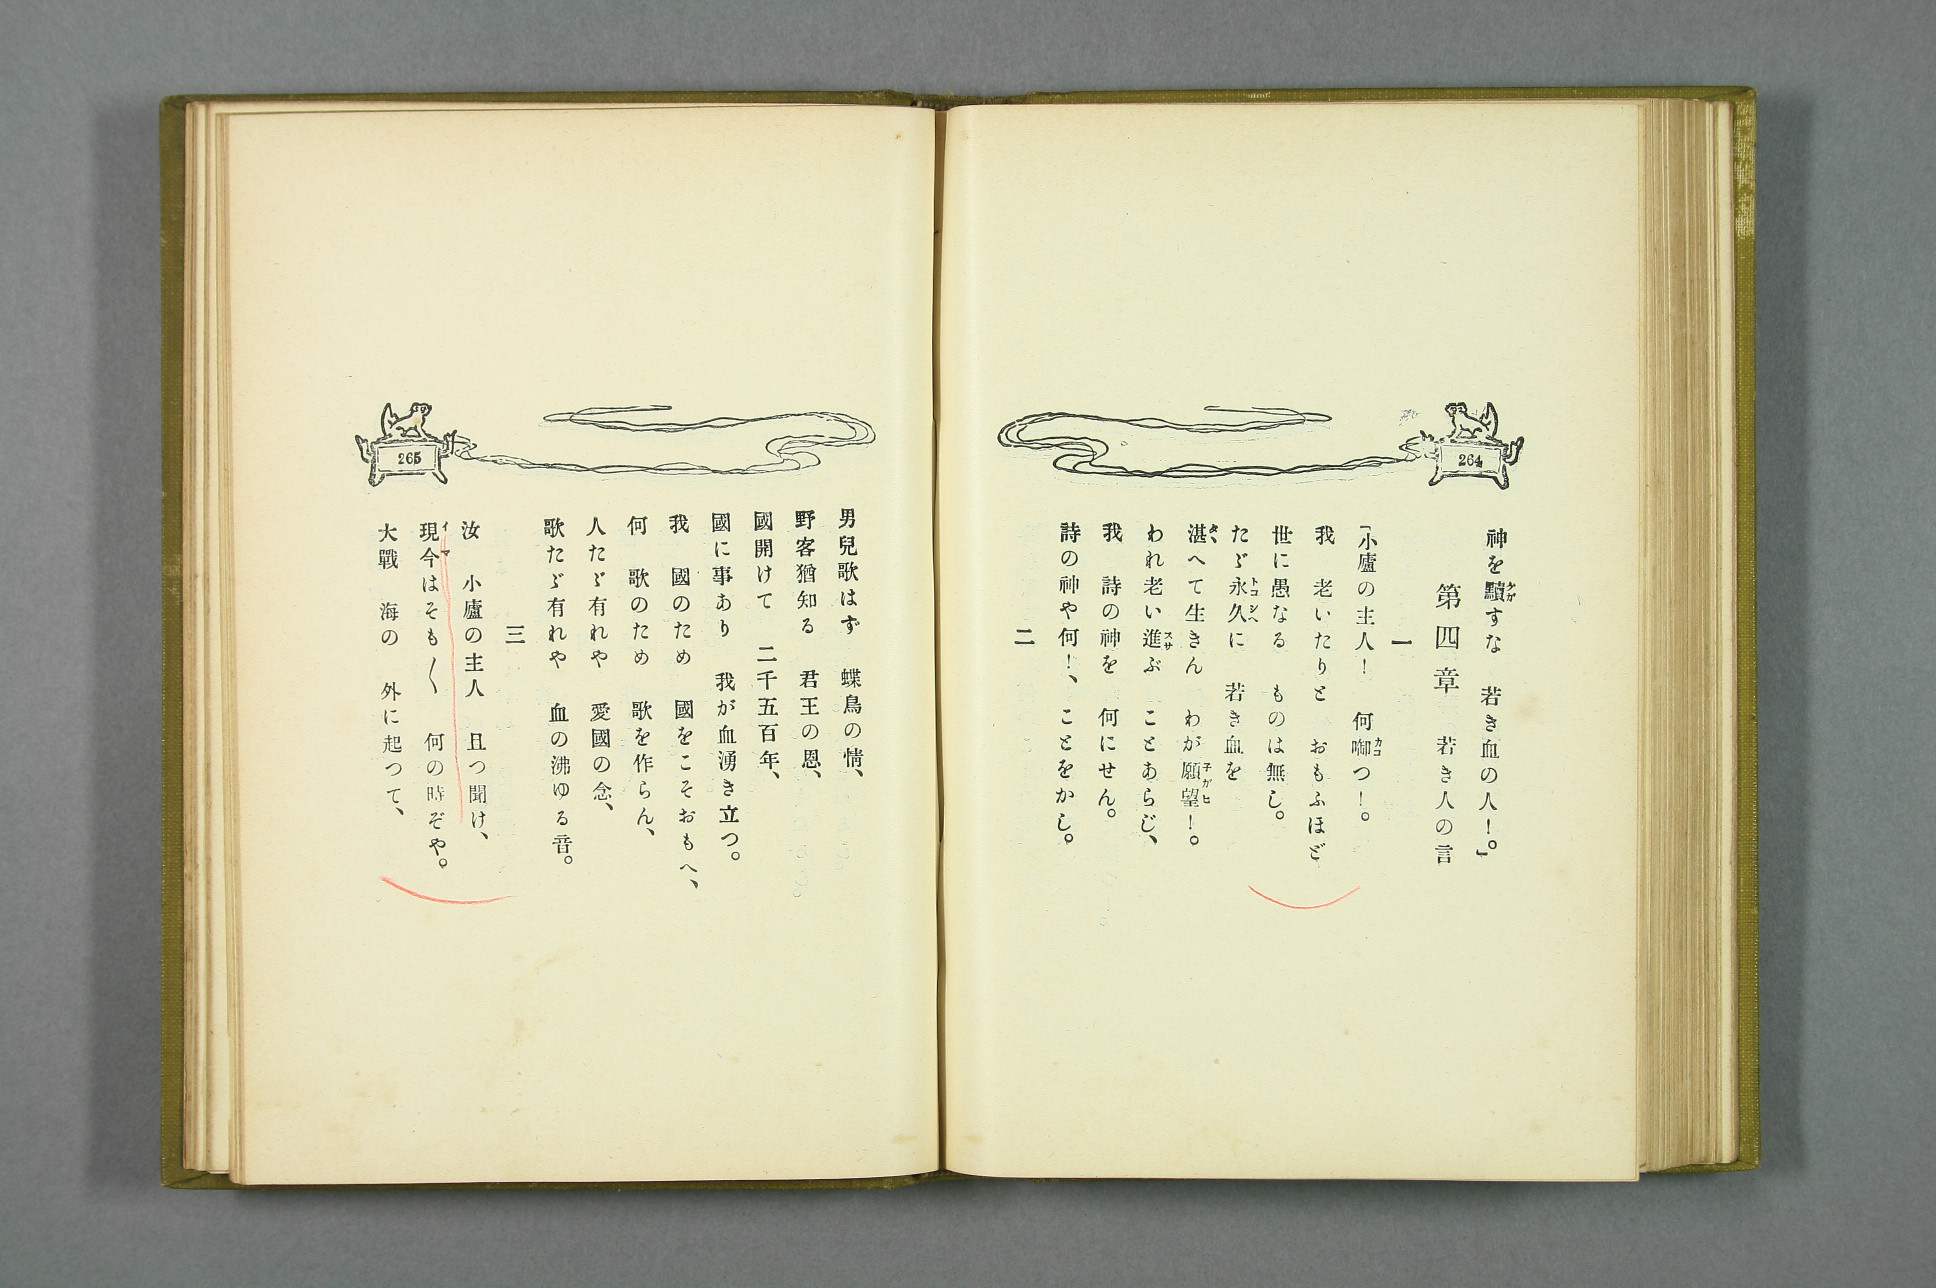 264
神を黷すな　若き血の人！。」
第四章　若き人の言
一
「小廬の主人！　何啣つ！。
我　老いたりと　おもふほど
世に愚なる　ものは無し。
たゞ永久に　若き血を
湛へて生きん　わが願望！。
われ老い進ぶ　ことあらじ、
我　詩の神を　何にせん。
詩の神や何！、ことをかし。
二
265
男兒歌はず　蝶鳥の情、
野客猶知る　君王の恩、
國開けて　二千五百年、
國に事あり　我が血湧き立つ。
我　國のため　國をこそおもへ、
何　歌のため　歌を作らん、
人たゞ有れや　愛國の念、
歌たゞ有れや　血の沸ゆる音。
三
汝　小廬の主人　且つ聞け、
現今はそも〳〵　何の時ぞや。
大戰　海の　外に起つて、